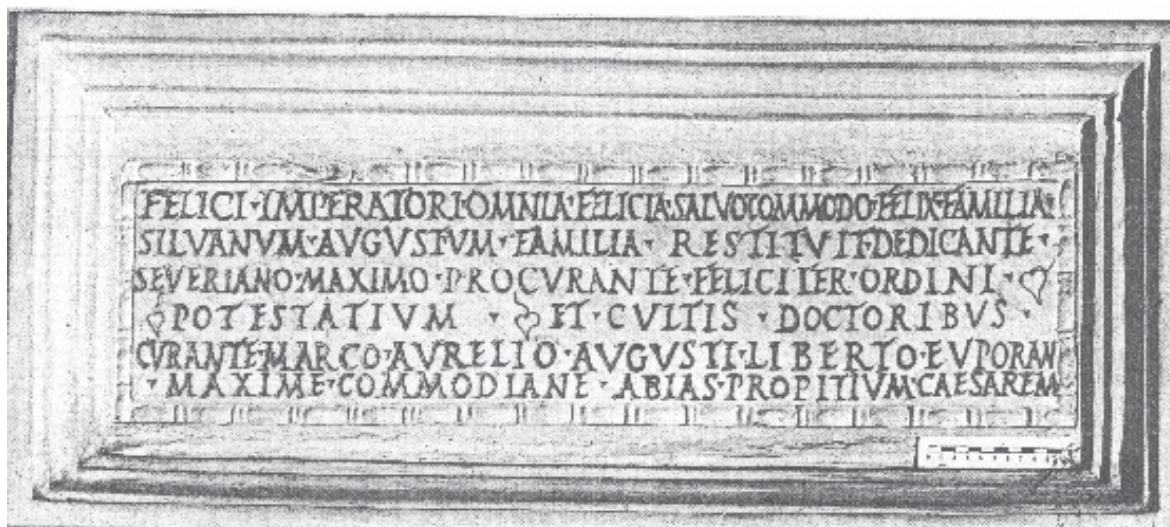 FELICI·IMPERATORI·OMNIA·FELICIA·SALVO·COMMODO·FELIX·FAMILIA·
SILVANVM·AVGVSTVM·FAMILIA·RESTITVIT·DEDICANTE·
SEVERIANO·MAXIMO·PROCVRANTE·FELICITER·ORDINI·
POTESTATIVM·ET·CVLTIS·DOCTORIBVS·
CVRANTE·MARCO·AVRELIO·AVGVSTI·LIBERTO·EVPORAN
·MAXIME·COMMODIANE·ABIAS·PROPITIVM·CAESAREM